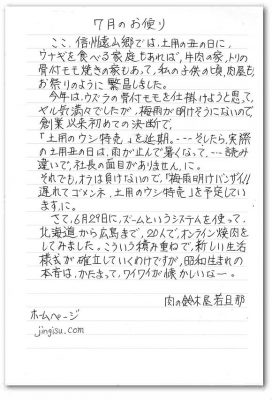 7月のお便り
ここ、信州遠山郷では、土用の丑の日に、
ウナギを食べる家庭もあれば、牛肉の家、トリの
骨付モモ焼きの家もあって、私の子供の頃、肉屋も
お祭りのように繁昌しました。
今年は、ウズラの骨付モモを仕掛けようと思って、
ヤル気満々でしたが、梅雨が明けそうにないので、
創業以来初めての決断で、
「土用のウシ特売」を延期。----そしたら、実際
の土用丑の日は、雨が止んで暑くなって、---読み
違いで、社長の面目がありません、に。
それでも、オラは負けないので、「梅雨明けバンザイ!!
遅れてゴメンネ、土用のウシ特売」を予定してい
ます、に。
さて、6月29日に、ズームというシステムを使って、
北海道から広島まで、20人で、オンライン焼肉を
してみました。こういう積み重ねで、新しい生活
様式が確立していくわけですが、昭和生まれの
本音は、かたまって、ワイワイが懐かしいなー。
肉の鈴木屋若旦那
ホームページ
jingisu.com